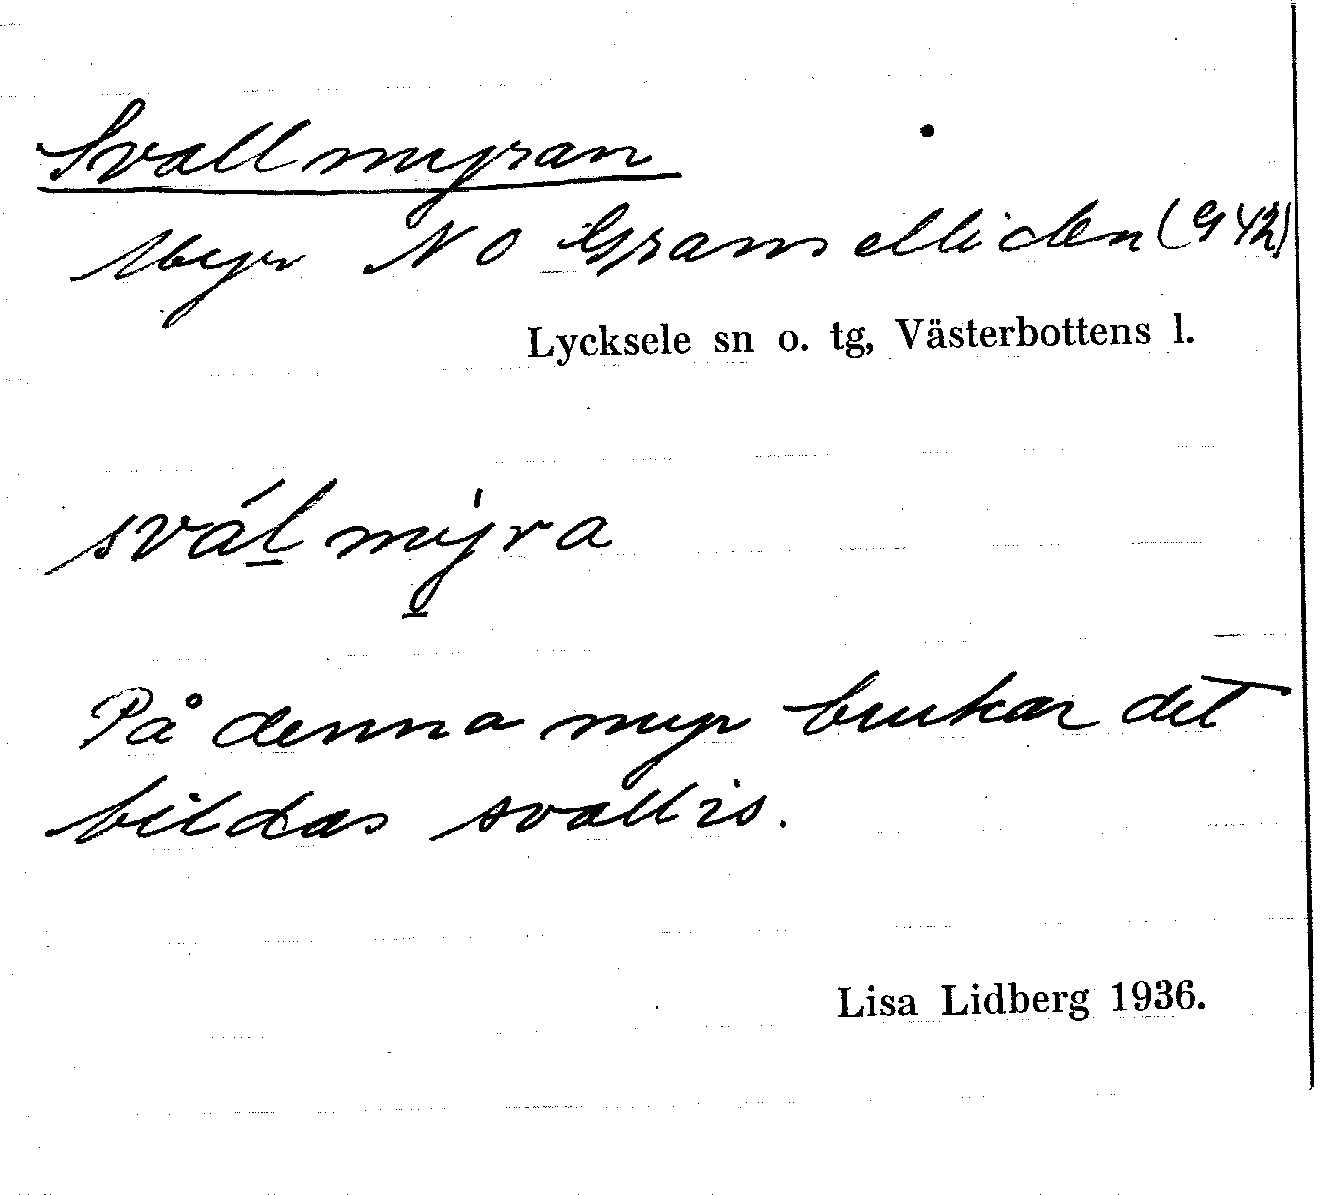 Svallmyran
Myr NO Granselliden (G 42)
Lycksele sn o. tg, Västerbottens l.
svál̲ my̲̍ra
På denna myr brukar det
bildas svallis.
Lisa Lidberg 1936.